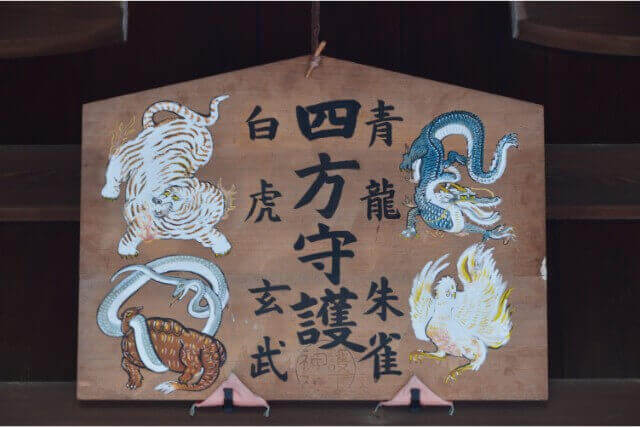 青龍 朱雀
四方守護
白虎 玄武